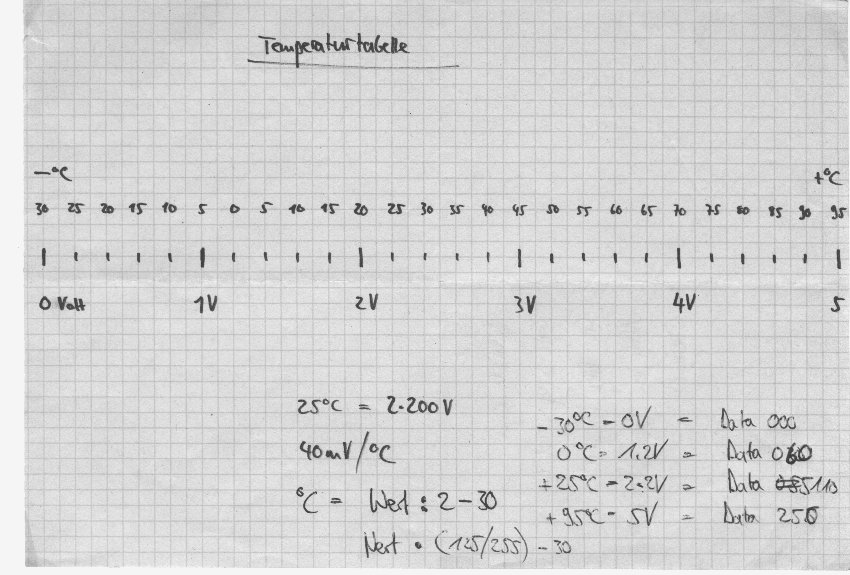 Temperaturtabelle
-°C +°C
30 25 20 15 10 5 0 5 10 15 20 25 30 35 40 45 50 55 60 65 70 75 80 85 90 95
0 Volt 1V 2V 3V 4V 5
25°C = 2.200V
40mV/°C
°C = Wert : 2 - 30
Wert • (125/255) - 30
-30°C - 0V = Data 000
0°C - 1.2V = Data 060
+25°C - 2.2V = Data 110
+95°C - 5V = Data 250